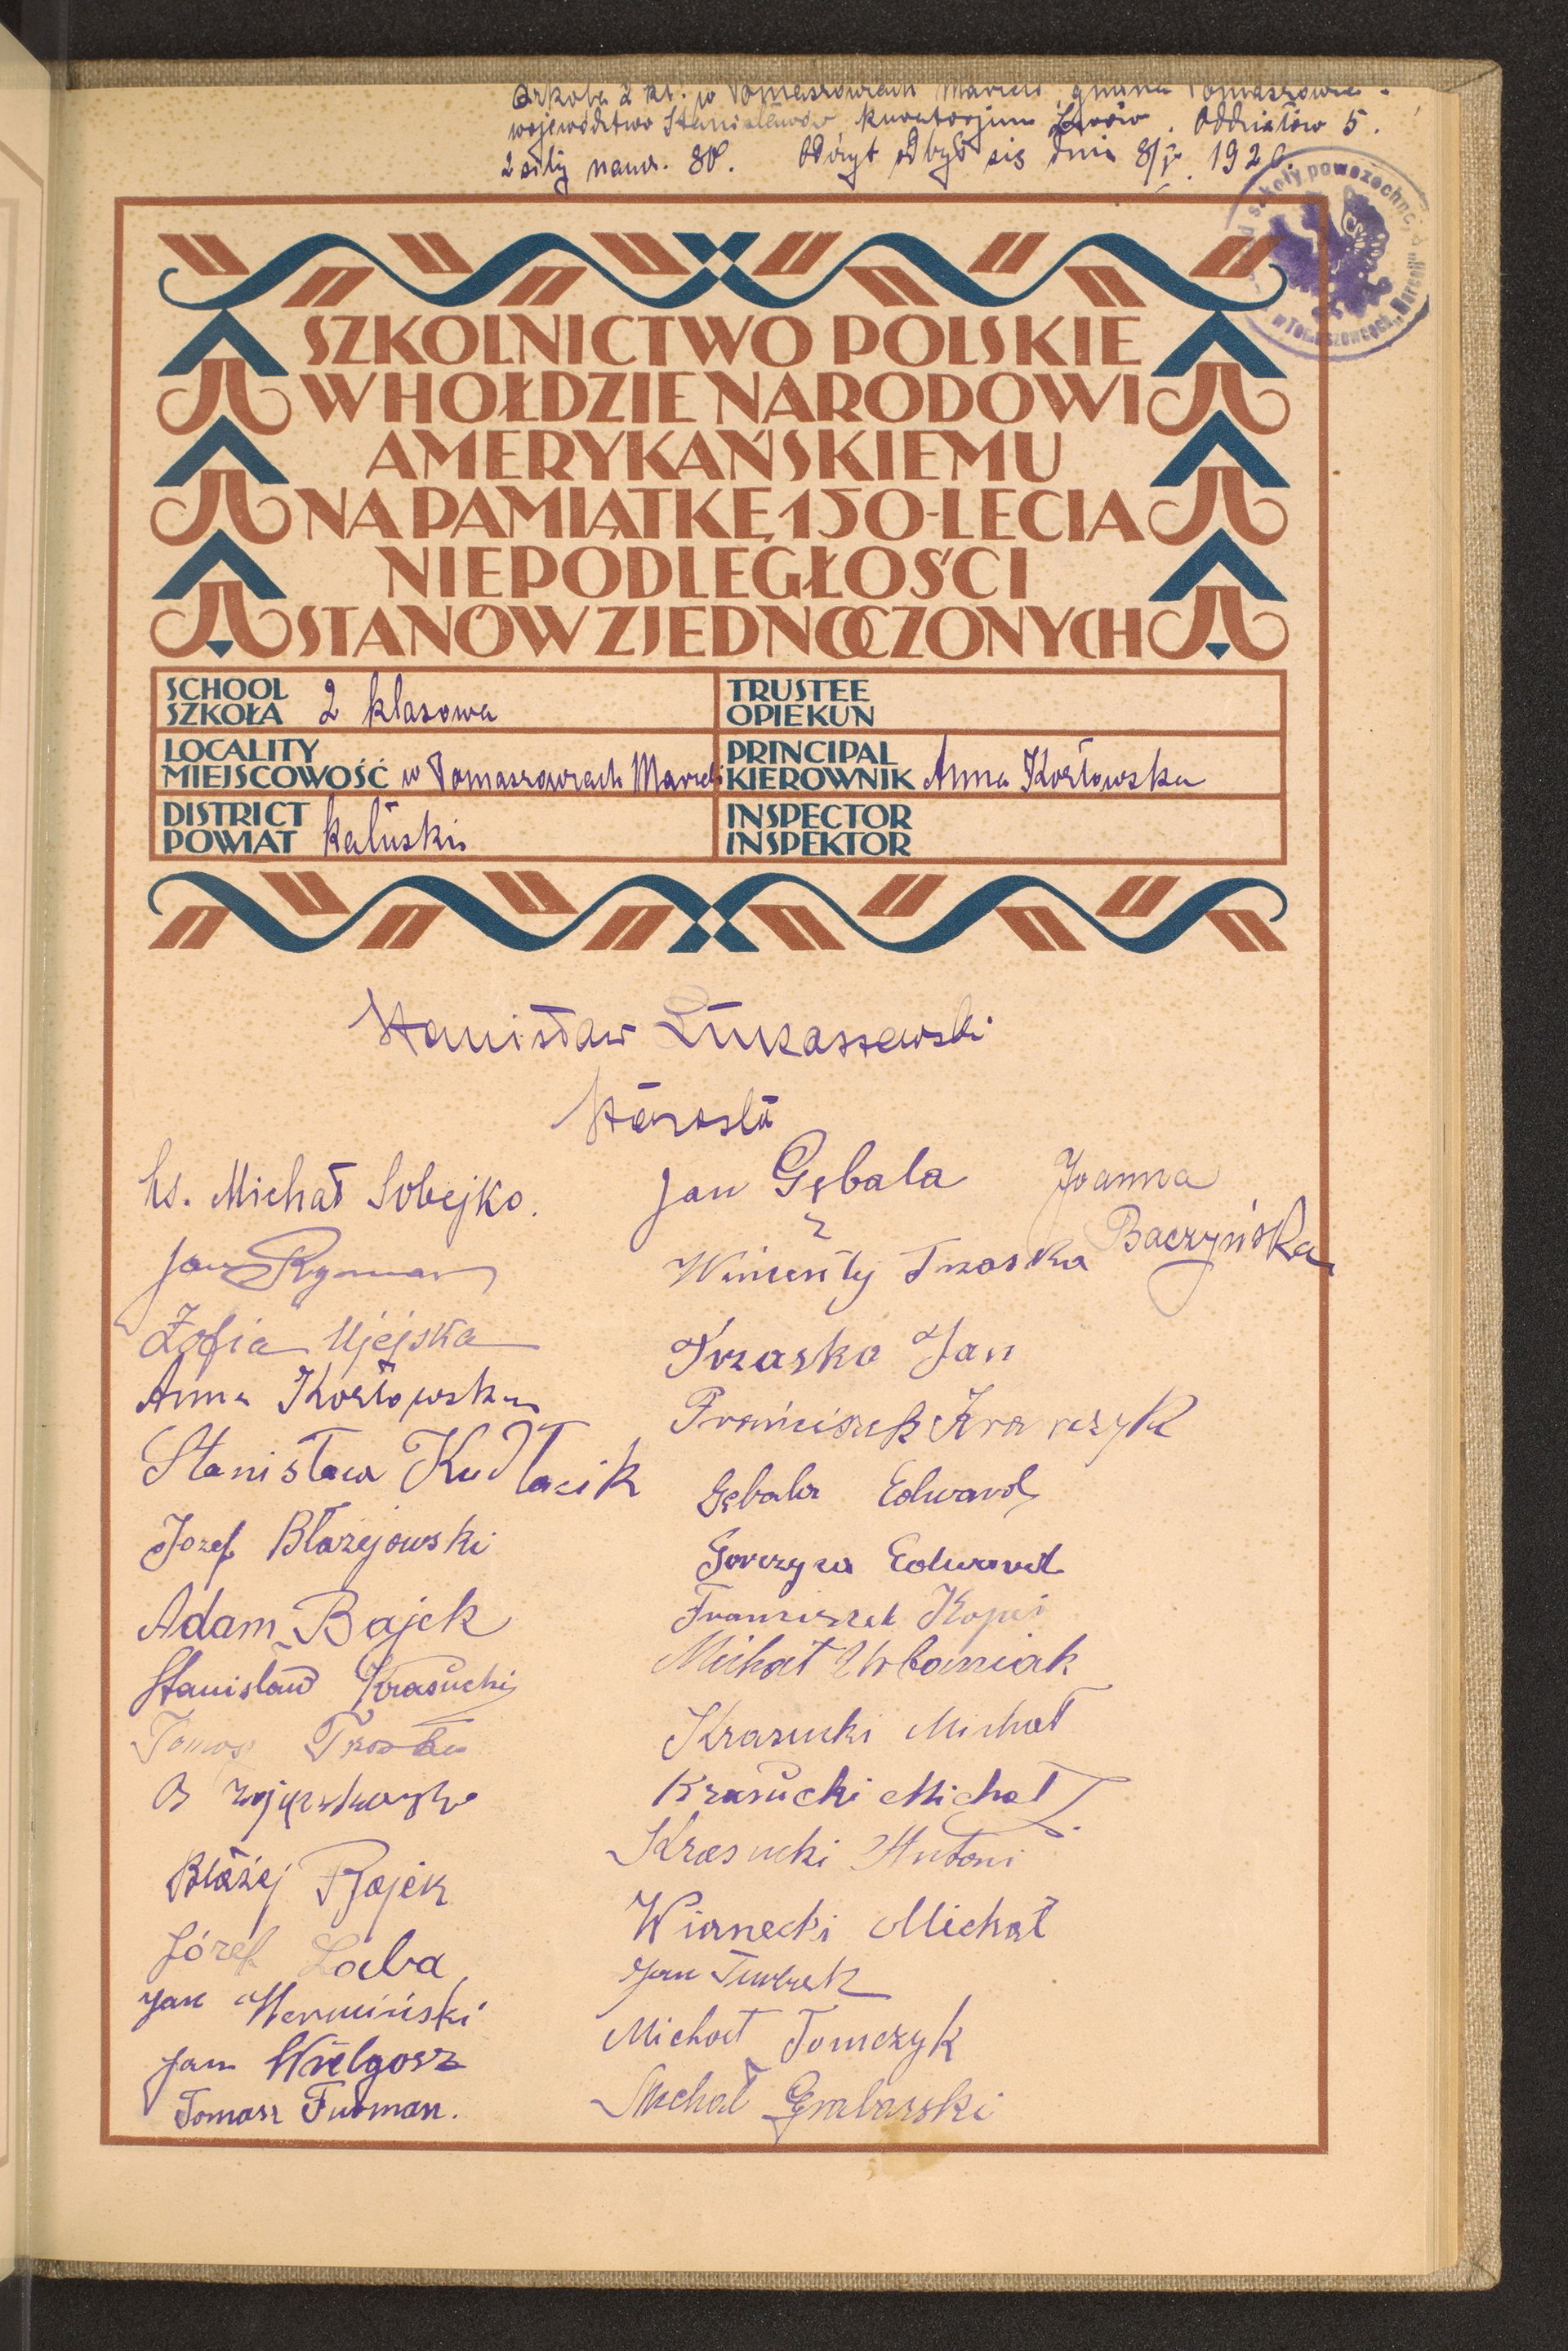 Szkoła 2 kl. w Tomaszowcach Mareli, gmina Tomaszowce.
województwo Stanisławów, kuratorjum Lwów. Oddziałów 5.
2 siły nauz. Odczyt odbył się dnia 8/V. 1926.
szkoły powszechnej
w Tomaszowcach
SZKOLNICTWO POLSKIE
W HOŁDZIE NARODOWI
AMERYKAŃSKIEMU
NA PAMIĄTKĘ 150-LECIA
NIEPODLEGŁOŚCI
STANÓW ZJEDNOCZONYCH
SCHOOL
SZKOŁA 2 klasowa
TRUSTEE
OPIEKUN
LOCALITY
MIEJSCOWOŚĆ w Tomaszowcach
PRINCIPAL
KIEROWNIK Anna Kozłowska
DISTRICT
POWIAT kałuski
INSPECTOR
INSPEKTOR
Stanisław Łukaszewski
Starosta
ks. Michał Sobejko.
Jan Rymar
Zofia Ujejska
Anna Kozłowska
Stanisław Kudłacik
Jozef Błażejowski
Adam Bajek
Stanisław Krasucki
Tomasz
Błażej Bajek
Józef Laba
Jan
Jan Wielgosz
Tomasz Furman.
Jan Gębala
Joanna
Baczyńska
Wincenty Trzaska
Trzaska Jan
Franciszek Krawczyk
Gębala Edward
Gorczyca Edward
Franciszek Kopeć
Michał Urbaniak
Krasucki Michał
Krasucki Michał
Krasucki Antoni
Wiarnecki Michał
Jan
Michał Tomczyk
Michał Grabarski